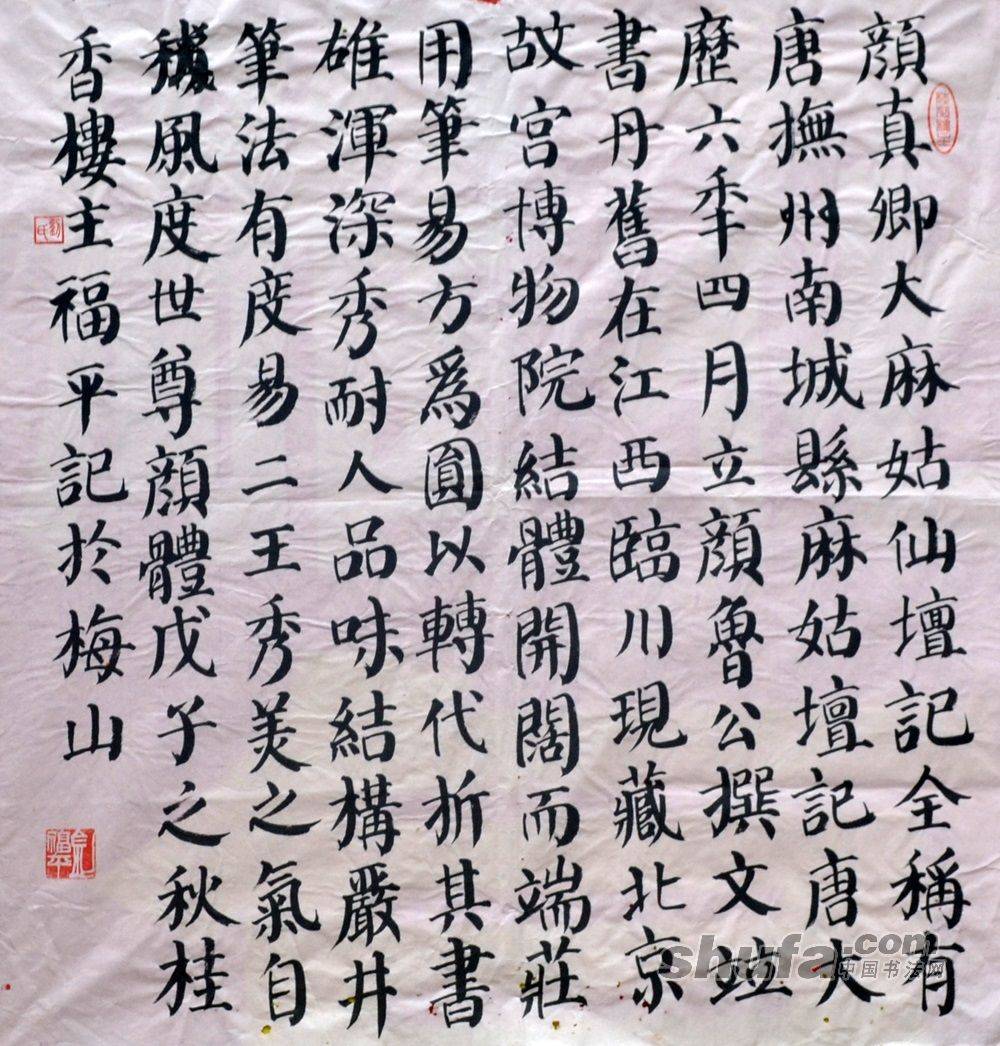 顔真卿大麻姑仙壇記全稱有
唐撫州南城縣麻姑壇記唐大
歷六秊四月立顔魯公撰文竝
書丹舊在江西臨川現藏北京
故宮博物院結體開闊而端莊
用筆易方爲圓以轉代折其書
雄渾深秀耐人品味結構嚴井
筆法有度易二王秀美之氣自
風度世尊顔體戊子之秋桂
香樓主福平記於梅山
shufa.com
中国书法网